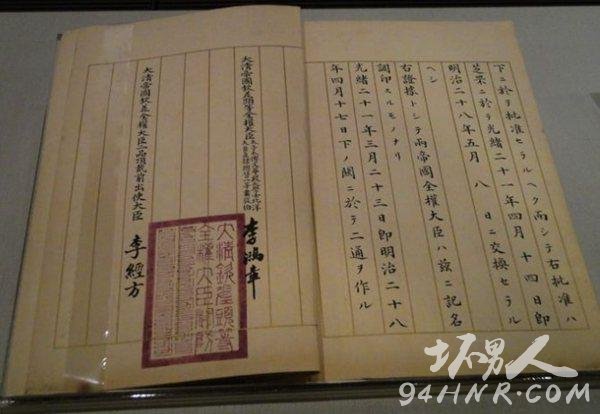 下ニ於テ批准セラルヘク而シテ右批准ハ
芝罘ニ於テ光緒二十一年四月 十四日即
明治二十八年五月 八 日ニ交換セラル
ヘシ
右證據トシテ兩帝國全權大臣ハ茲ニ記名
調印スルモノナリ
光緒二十一年三月二十三日即明治二十八
年四月十七日下ノ關ニ於テ二通ヲ作ル
大清帝國欽差頭等全權大臣太子太傅文華殿大學士北洋大臣直隸總督一等肅毅伯 李鴻章
大清帝國欽差全權大臣二品頂戴前出使大臣 李經方
大清欽差頭等
全權大臣關防
坏男人
94HNR.COM